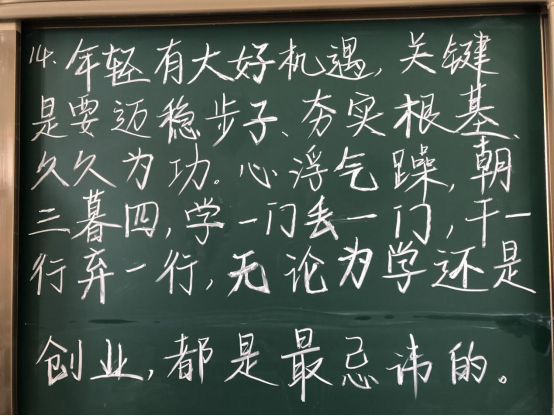 14. 年轻有大好机遇，关键
是要迈稳步子、夯实根基、
久久为功。心浮气躁，朝
三暮四，学一门丢一门，干一
行弃一行，无论为学还是
创业，都是最忌讳的。